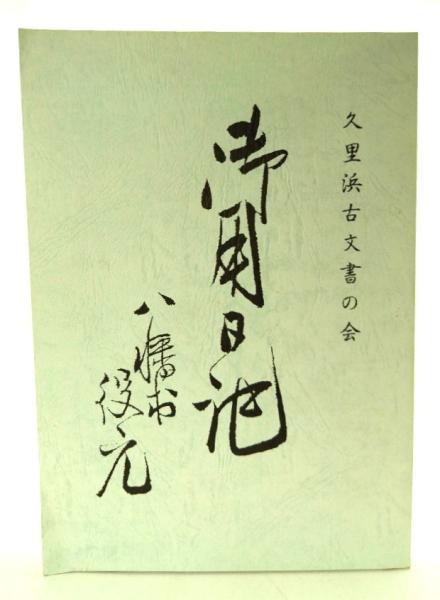 久里浜古文書の会
御用日記
八幡村
役元